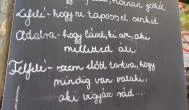 honnan jöttél
Lefelé - hogy ne taposs el senkit
Oldalra - hogy lásd, ki az, aki
melletted áll
Felfelé - szem előtt tartva, hogy
mindig van valaki,
aki vigyáz rád...